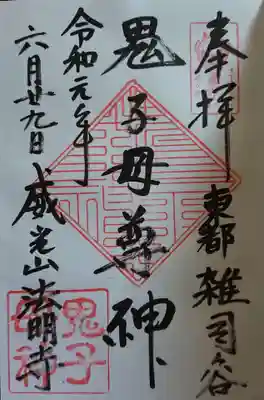 奉拝
東都雑司谷
鬼子母尊神
令和元年
六月廿九日
威光山法明寺